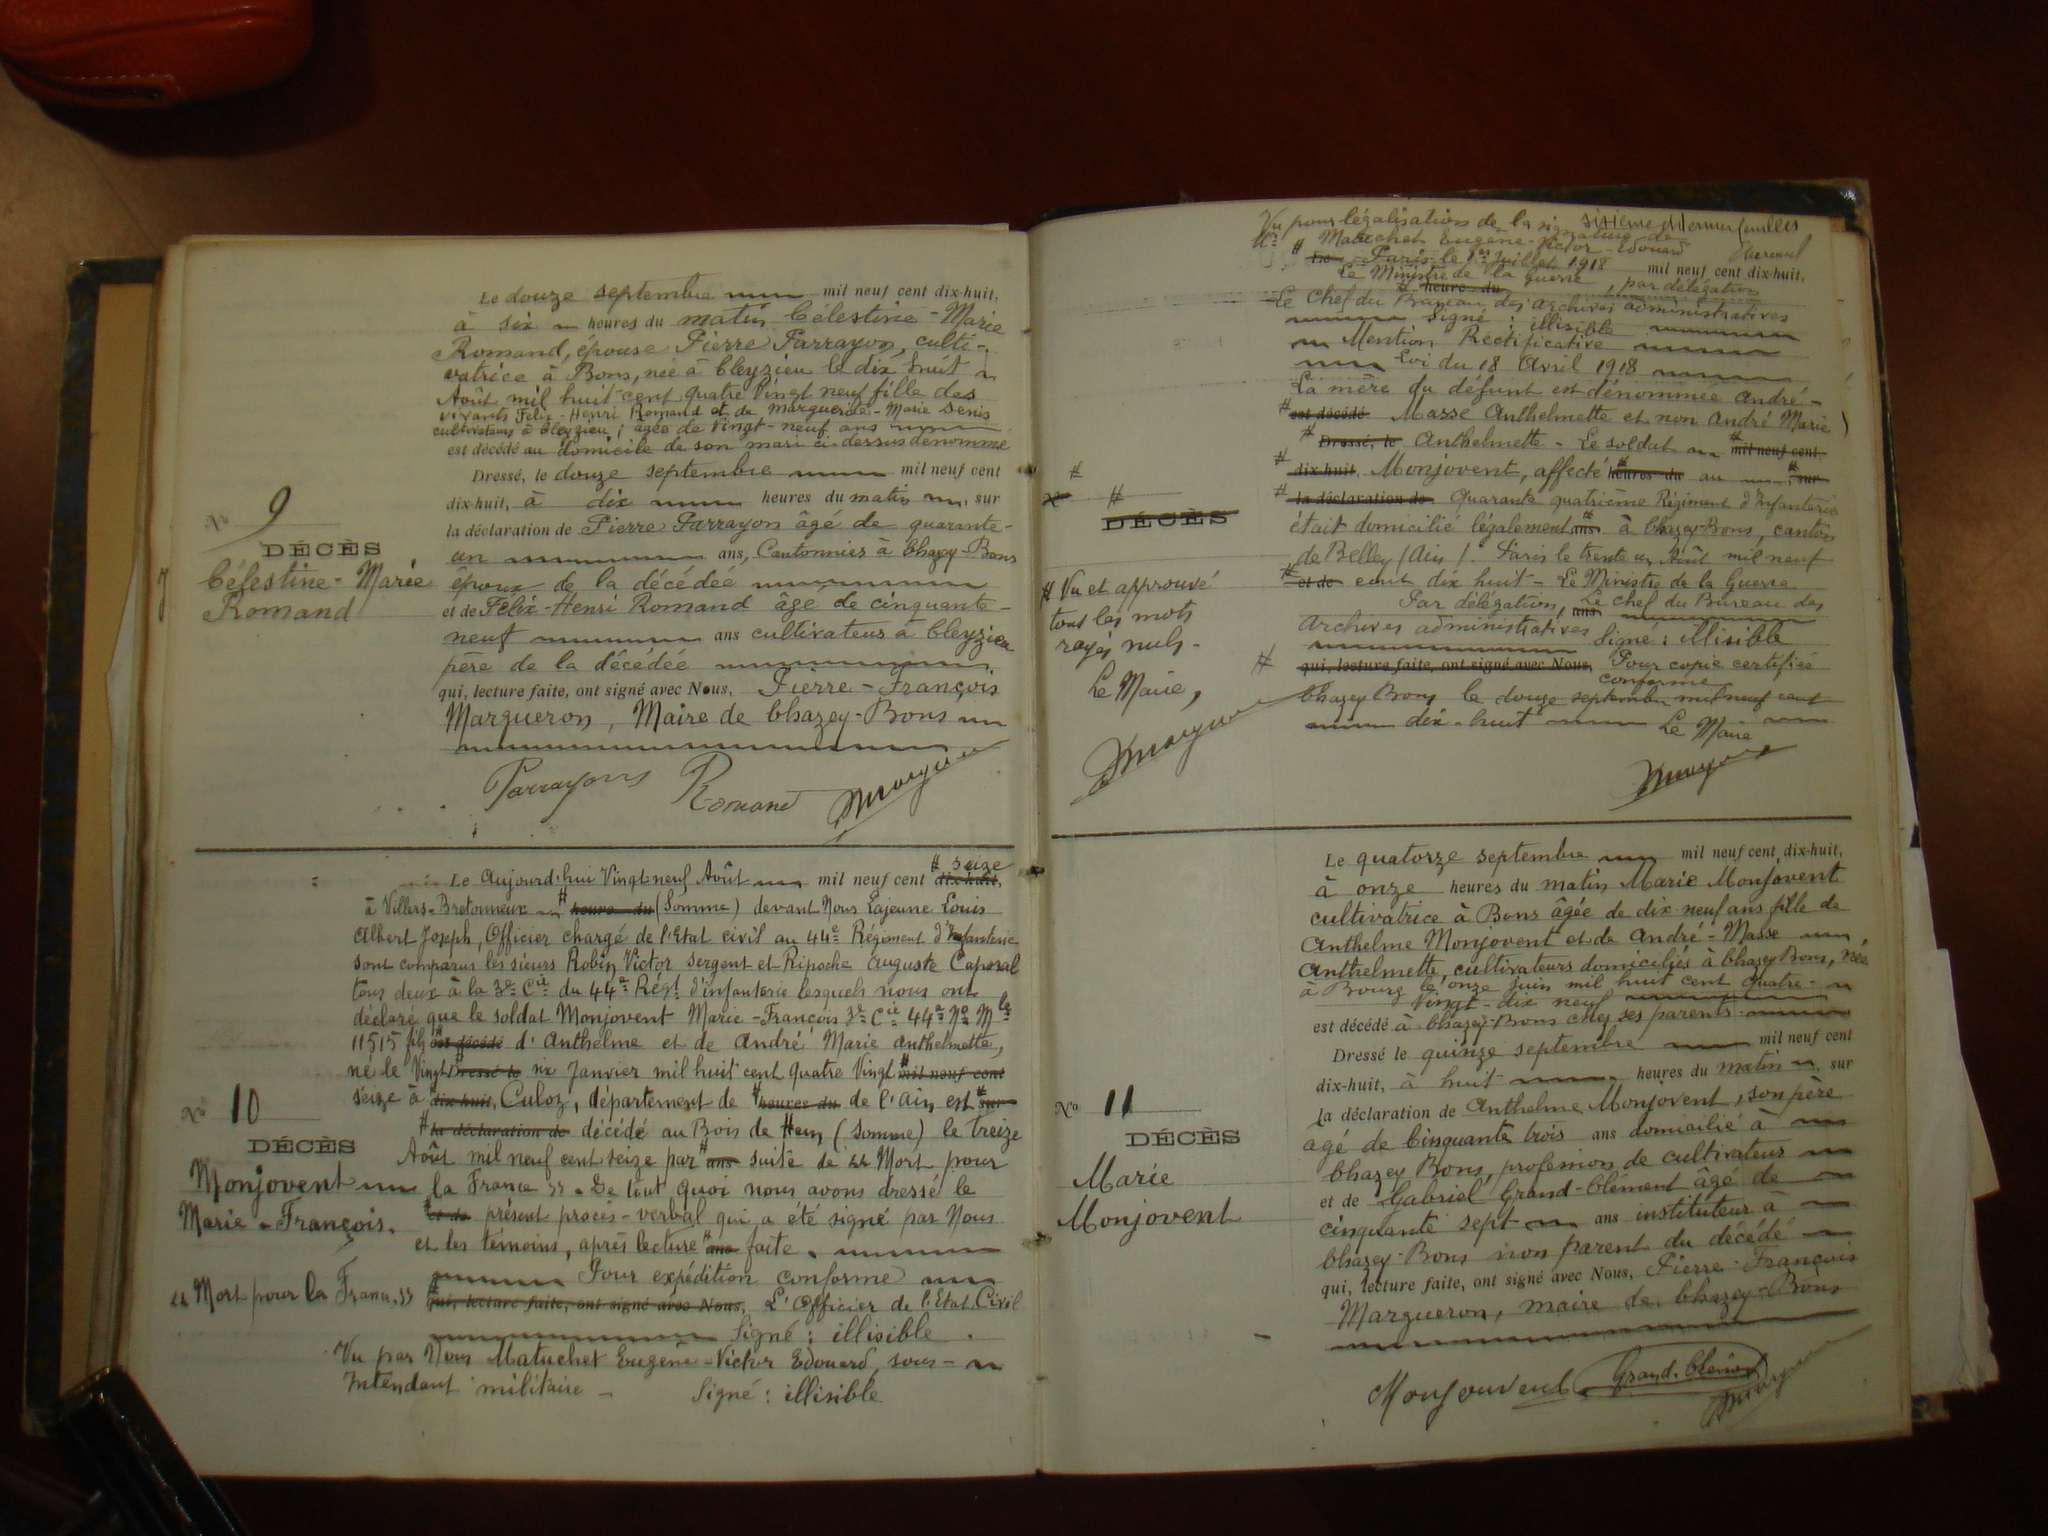 Le douze septembre mil neuf cent dix-huit,
à six heures du matin Célestine-Marie
Romand, épouse Pierre Parrayon, culti-
vatrice à Bons, née à Cleyzieu le dix huit
Août mil huit cent quatre vingt neuf fille des
vivants Félix-Henri Romand et de Marguerite-Marie Denis
cultivateurs à Cleyzieu ; agée de vingt-neuf ans
est décédé au domicile de son mari ci-dessus dénommé
Dressé, le douze septembre mil neuf cent
dix-huit, à dix heures du matin, sur
la déclaration de Pierre Parrayon âgé de quarante-
un ans, Cantonnier à Chazey-Bons
époux de la décédée
et de Félix-Henri Romand âgé de cinquante-
neuf ans cultivateur à Cleyzieu
père de la décédée
qui, lecture faite, ont signé avec Nous, Pierre-François
Margueron, Maire de Chazey-Bons
No 9
DÉCÈS
Célestine-Marie
Romand
Parrayon Romand Margueron
Le Aujourd'hui Vingt neuf Août mil neuf cent dix-huit, # seize
à Villers-Bretonneux # heure du (Somme) devant Nous Lajeune Louis
Albert Joseph, Officier chargé de l'Etat civil au 44e Régiment d'Infanterie
sont comparus les sieurs Robin Victor Sergent et Ripoche Auguste Caporal
tous deux à la 3e Cie du 44e Régt d'infanterie lesquels nous ont
déclaré que le soldat Monjovent Marie-François 3e Cie 44e No Mle
11515 fils # est décédé d'Anthelme et de André Marie Anthelmette,
né le Vingt Dressé le six Janvier mil huit cent quatre Vingt # mil neuf cent
seize à dix-huit, Culoz, département de # heures du de l'Ain est # sur
# la déclaration de décédé au Bois de Hem (Somme) le treize
Août mil neuf cent seize par # ans suite de "Mort pour
la France". De tout quoi nous avons dressé le
# et de présent procès-verbal qui a été signé par Nous
et les témoins, après lecture # ans faite.
Pour expédition conforme
# qui, lecture faite, ont signé avec Nous, L'Officier de l'Etat Civil
Signé : illisible.
Vu par Nous Matuchet Eugène-Victor Edouard, sous-
intendant militaire - Signé : illisible
No 10
DÉCÈS
Monjovent
Marie-François.
"Mort pour la France"
sixième et dernier feuillet
Vu pour légalisation de la signature de
Mr Matuchet Eugène-Victor-Edouard
# Le Paris le 1er Juillet 1918 mil neuf cent dix-huit,
Le Ministre de la Guerre, par délégation
# heure du
Le Chef du Bureau des Archives administratives
Signé : illisible
Mention Rectificative
Loi du 18 Avril 1918
La mère du défunt est dénommée André-
# est décédé Masse Anthelmette et non André Marie
# Dressé, le Anthelmette - Le soldat # mil neuf cent
# dix-huit, Monjovent, affecté # heures du au # sur
# la déclaration de Quarante quatrième Régiment d'Infanterie
était domicilié légalement # ans à Chazey-Bons, canton
de Belley (Ain). Paris le trente un Août mil neuf
# et de cent dix huit - Le Ministre de la Guerre
Par délégation, ans Le chef du Bureau des
Archives administratives Signé : illisible
# qui, lecture faite, ont signé avec Nous, Pour copie certifiée
conforme
Chazey Bons le douze septembre mil neuf cent
dix-huit Le Maire
Margueron
#
No #
DÉCÈS
# Vu et approuvé
tous les mots
rayés nuls -
Le Maire,
Margueron
Le quatorze septembre mil neuf cent dix-huit,
à onze heures du matin Marie Monjovent
cultivatrice à Bons âgée de dix-neuf ans fille de
Anthelme Monjovent et de André-Masse
Anthelmette, cultivateurs domiciliés à Chazey Bons, née
à Bourg le onze Juin mil huit cent quatre-
vingt-dix neuf
est décédé à Chazey-Bons chez ses parents
Dressé le quinze septembre mil neuf cent
dix-huit, à huit heures du matin, sur
la déclaration de Anthelme Monjovent, son père
agé de Cinquante trois ans domicilié à
Chazey Bons, profession de cultivateur
et de Gabriel Grand-Clément âgé de
cinquante sept ans instituteur à
Chazey-Bons non parent du décédé
qui, lecture faite, ont signé avec Nous, Pierre-François
Margueron, maire de Chazey-Bons
No 11
DÉCÈS
Marie
Monjovent
Monjouvent Grand-Clément Margueron